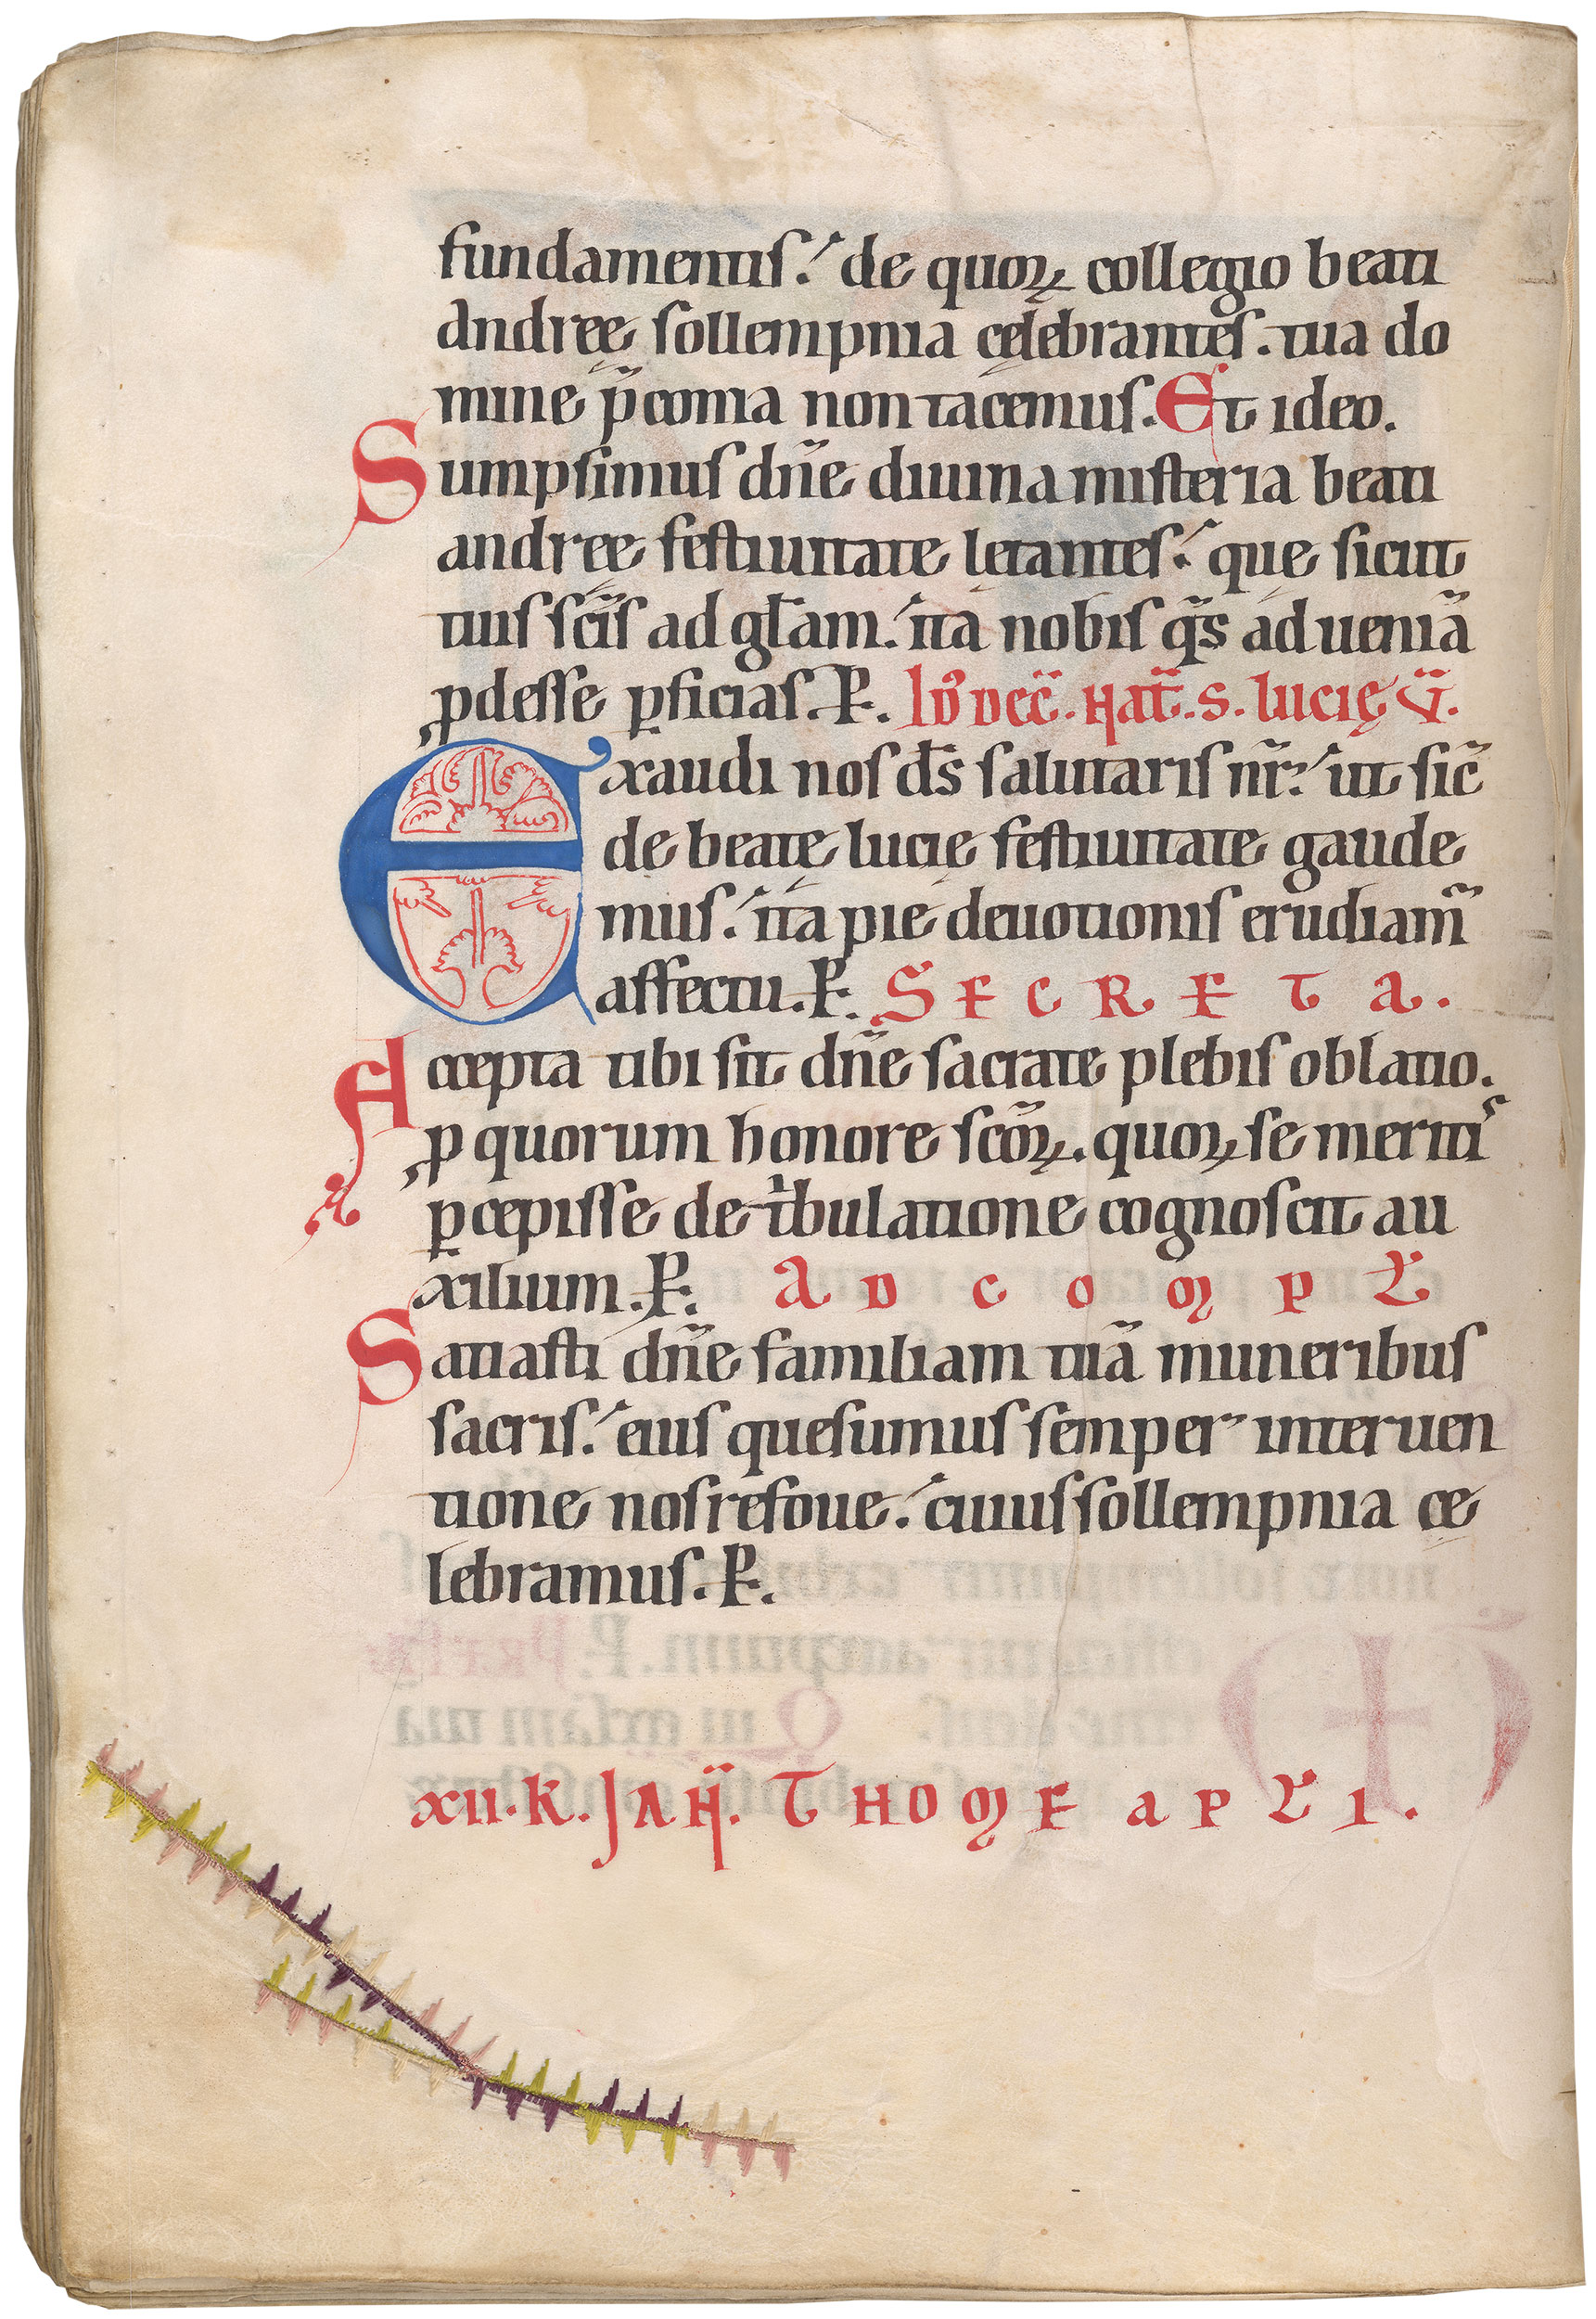 fundamentis. de quoꝝ collegio beati
Andreę sollempnia cęlebrantes. tua do
mine p̃conia non tacemus. Et ideo.
Sumpsimus dñe diuina misteria beati
andree festiuitate letantes. que sicut
tuis sc̃is ad gl̃am. ita nobis q̃s ad ueniã
ꝓdesse ꝑficias. P. Id᷑ Dec̃. Nat̃. S. Lucię Ṽ.
Exaudi nos ds̃ salutaris nr̃. ut sic̃
de beatę lucię festiuitate gaude
mus. ita pie deuotionis erudiam̃
affectu. P. SECRETA.
Accepta tibi sit dñe sacrate plebis oblatio.
ꝓ quorum honore sc̃oꝝ. quoꝝ se meritis
ꝑcepisse de tͥbulatione cognoscit au
xilium. P. AD COMPL̃
Satiasti dñe familiam tuã muneribus
sacris. eius quesumus semper interuen
tione nos refoue. cuius sollempnia cę
lebramus. P.
XII. K. JAÑ. THOME APL̃I.